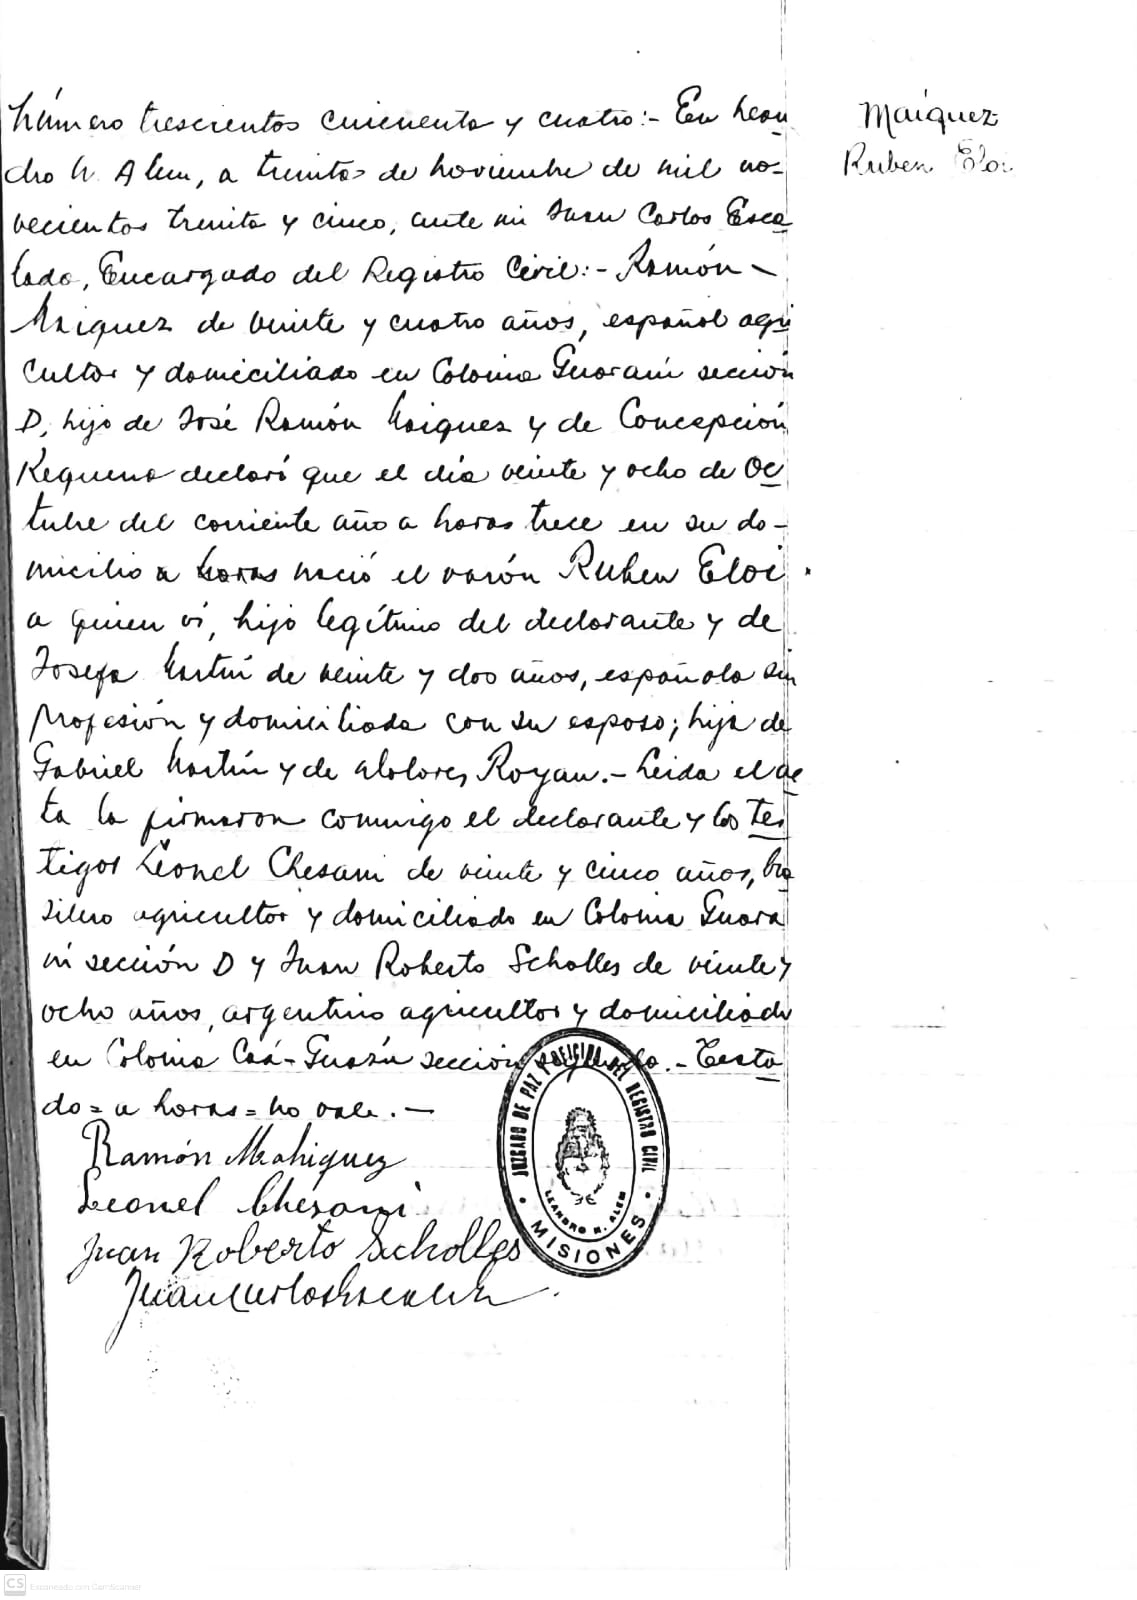 Número trescientos cincuenta y cuatro:- En Lean
dro N. Alem, a treinta de noviembre de mil no-
vecientos treinta y cinco, ante mi Juan Carlos Esca
lada, Encargado del Registro Civil:- Ramón -
Maiquez de veinte y cuatro años, español agri
cultor y domiciliado en Colonia Guaraní sección
D, hijo de José Ramón Maiquez y de Concepción
Requena declaró que el día veinte y ocho de Oc
tubre del corriente año a horas trece en su do-
micilio a horas nació el varón Ruben Eloi
a quien ví, hijo legítimo del declarante y de
Josefa Martín de veinte y dos años, española sin
profesión y domiciliada con su esposo; hija de
Gabriel Martín y de Dolores Royan.- Leida el ac
ta la firmaron conmigo el declarante y los tes
tigos Leonel Chesani de veinte y cinco años, bra
silero agricultor y domiciliado en Colonia Guara
ní sección D y Juan Roberto Scholles de veinte y
ocho años, argentino agricultor y domiciliado
en Colonia Caá-Guazú sección segunda.- Testa
do = a horas = no vale.-
Ramón Mahiquez
Leonel Chesani
Juan Roberto Scholles
Juan Carlos Escalada
Maíquez
Ruben Eloi
JUZGADO DE PAZ Y OFICINA DEL REGISTRO CIVIL
LEANDRO N. ALEM
MISIONES
CS Escaneado con CamScanner